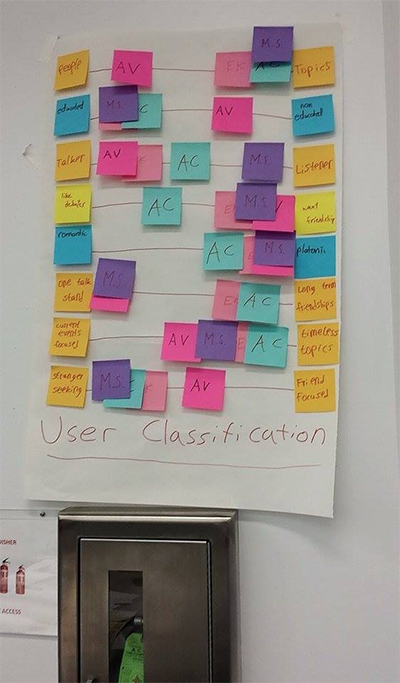 People AV EK M.S. AC Topics
educated M.S. C AV non educated
Talker AV K AC M.S. Listener
like debates AC E M.S. V want friendship
romantic AC E M.S. platonic
one talk stand M.S. EK AC Long term friendships
current events focused AV M.S. E AC timeless topics
stranger seeking M.S. K AV Friend Focused
User Classification
ISHER
ACCESS